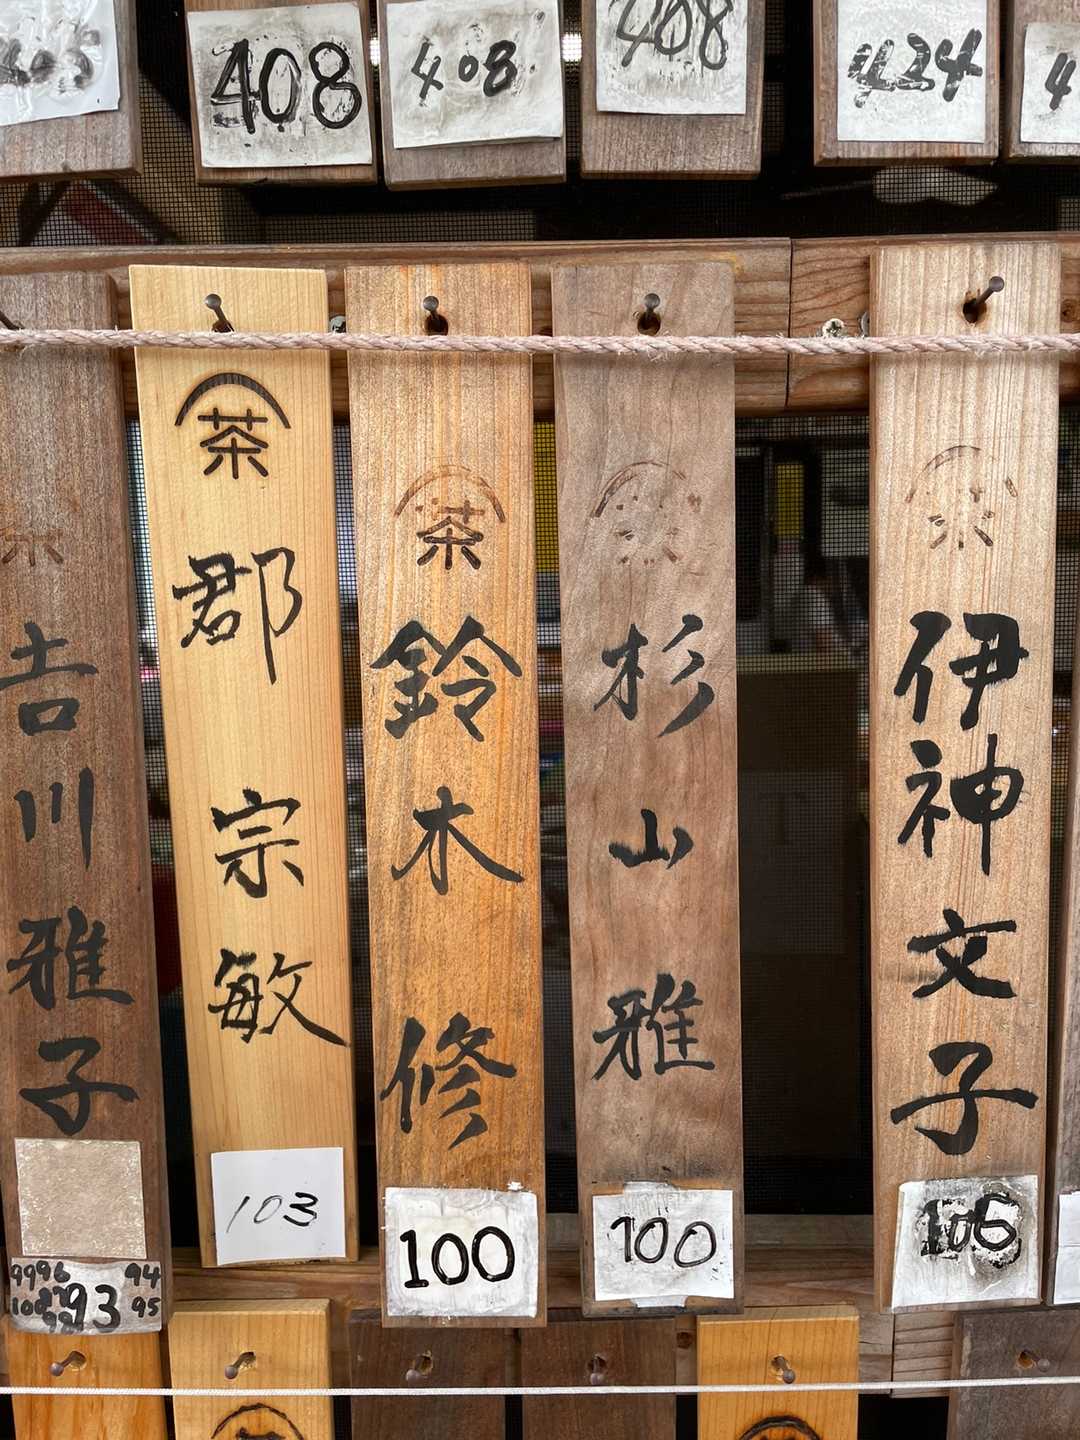 408
408
408
434
茶
吉川雅子
93
9996
94
95
茶
郡宗敏
103
茶
鈴木修
100
杉山雅
100
伊神文子
106